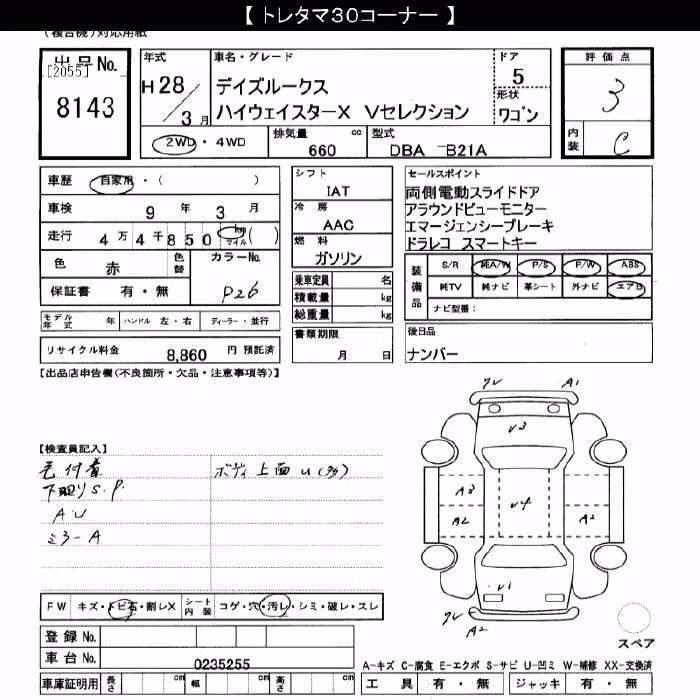 【 トレタマ30コーナー 】
(複合機)対応用紙
出品No.
[2055]
8143
年式
H 28 / 3 月
車名・グレード
デイズルークス
ハイウェイスターX Vセレクション
ドア
5
形状
ワゴン
2WD・4WD
排気量 cc
660
型式
DBA -B21A
評価点
3
内装
C
車歴 自家用・( )
車検 9 年 3 月
走行 4万4千850 km マイル ( )
色 赤
色替
カラーNo.
P26
保証書 有・無
モデル年式 年
ハンドル 左・右
ディーラー・並行
リサイクル料金 8,860 円 預託済
シフト
IAT
冷房
AAC
燃料
ガソリン
乗車定員 名
積載量 kg
総重量 kg
書類期限
月 日
セールスポイント
両側電動スライドドア
アラウンドビューモニター
エマージェンシーブレーキ
ドラレコ スマートキー
装備品
S/R 純A/W P/S P/W ABS
純TV 純ナビ 革シート 外ナビ エアB
ナビ型番:
後日品
ナンバー
【出品店申告欄(不良箇所・欠品・注意事項等)】
【検査員記入】
毛付着
下廻りS.P.
A.U
ミラーA
ボディ上面U(多)
FW キズ・トビ石・割レX
シート内装 コゲ・穴・汚レ・シミ・破レ・スレ
登録No.
車台No. 0235255
車庫証明用 長さ cm 幅 cm 高さ cm
ワレ A1
U3
A3
A2
U4
A2
U1
ワレ
A2
スペア
A-キズ C-腐食 E-エクボ S-サビ U-凹ミ W-補修 XX-交換済
工具 有・無 ジャッキ 有・無